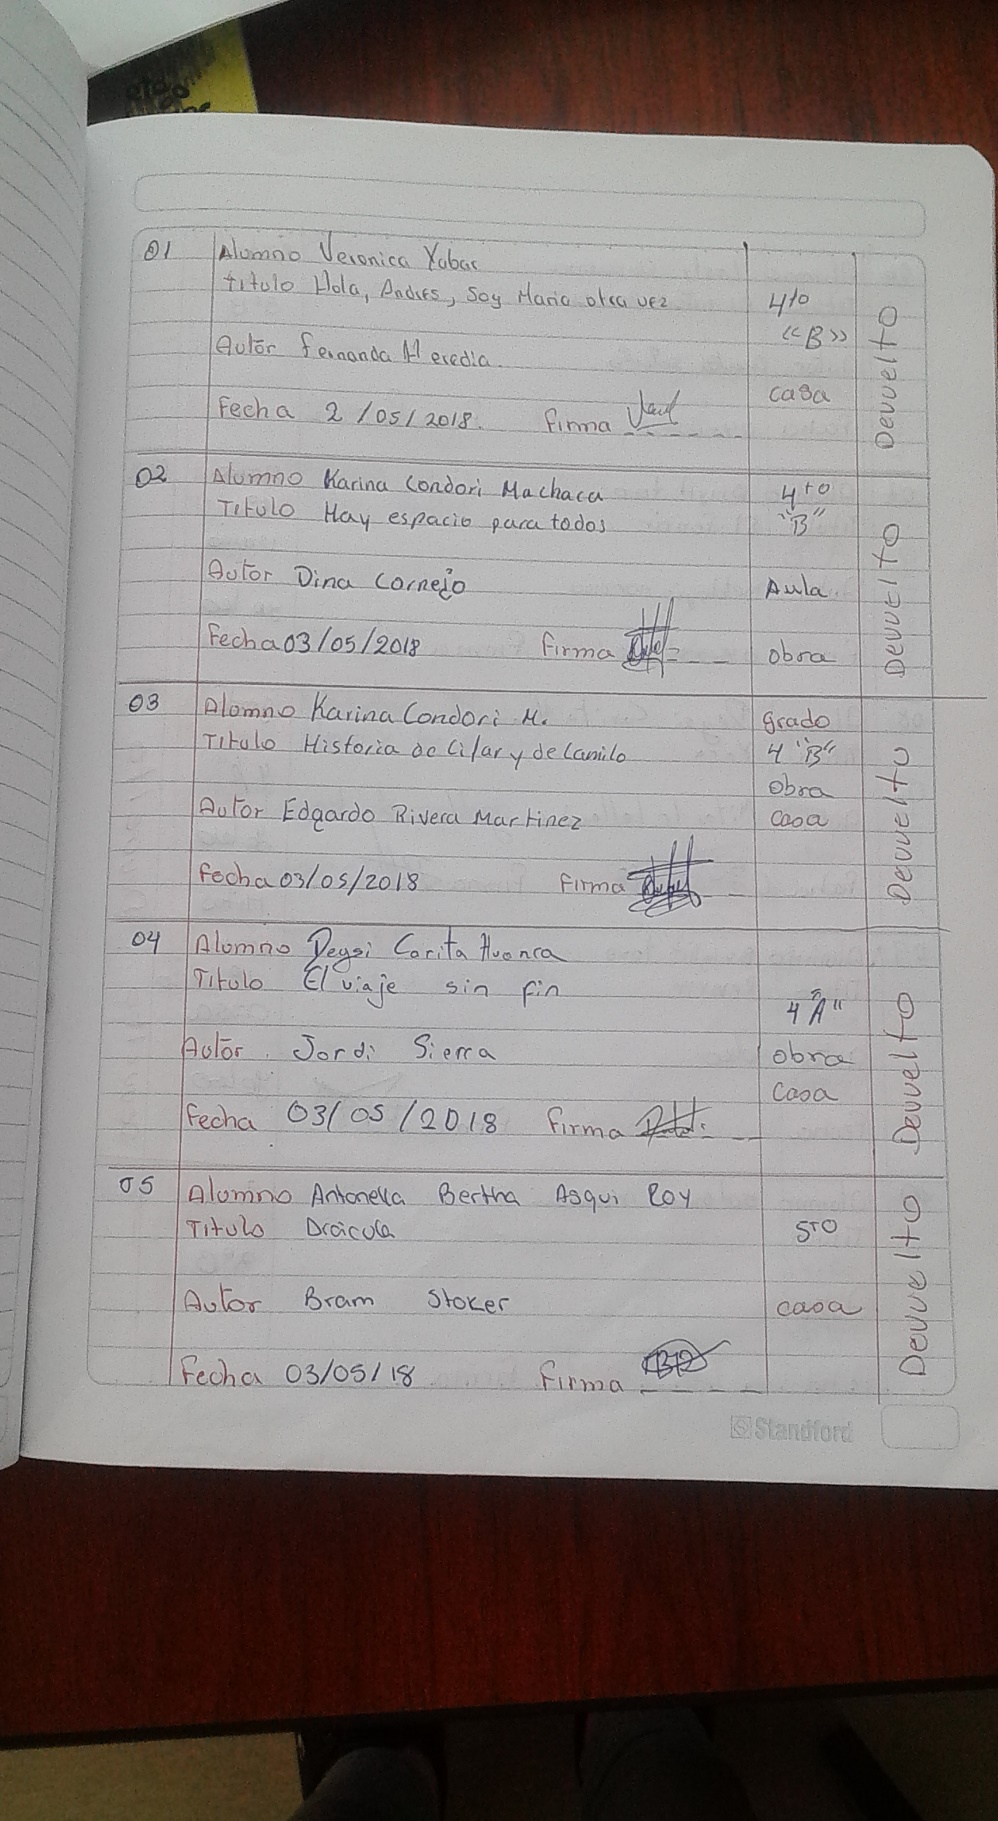 01 Alumno Veronica Yabar
titulo Hola, Andres, Soy Maria otra vez
4to
«B»
Autor Fernanda Heredia
casa
Fecha 2/05/2018. firma
Devuelto
02 Alumno Karina Condori Machaca
4to
Titulo Hay espacio para todos
"B"
Autor Dina Cornejo
Aula
Fecha 03/05/2018 firma
obra
Devuelto
03 Alumno Karina Condori M.
grado
Titulo Historia de Cilar y de Camilo
4 "B"
obra
Autor Edgardo Rivera Martinez
casa
Fecha 03/05/2018 firma
Devuelto
04 Alumno Deysi Carita Huanca
Titulo El viaje sin fin
4 "A"
Autor. Jordi Sierra
obra
casa
Fecha 03/05/2018 firma
Devuelto
05 Alumno Antonella Bertha Asqui Roy
Titulo Drácula
5TO
Autor Bram Stoker
casa
Fecha 03/05/18 firma
Devuelto
Standford